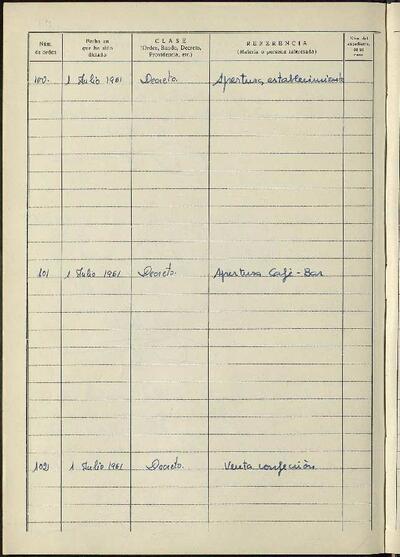 Núm. de orden | Fecha en que ha sido dictado | CLASE (Orden, Bando, Decreto, Providencia, etc.) | REFERENCIA (Materia o persona interesada) | Núm. del expediente, en su caso
100. | 1 Julio 1961 | Decreto. | Apertura establecimiento
101 | 1 Julio 1961 | Decreto. | Apertura Café-Bar
102 | 1 Julio 1961 | Decreto. | Venta confección